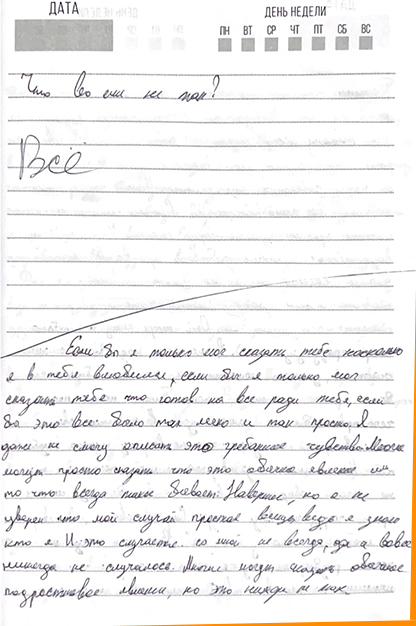 ДАТА
ДЕНЬ НЕДЕЛИ
ПН ВТ СР ЧТ ПТ СБ ВС
Что во мне не так?
Всё
Если бы я только мог сказать тебе насколько
я в тебя влюбился, если бы я только мог
сказать тебе что готов на все ради тебя, если
бы это все было так легко и так просто. Я
даже не смогу описать это гребаное чувство. Многие
могут просто сказать что это обычное явление или
то что всегда такое бывает. Наверное, но я не
уверен что мой случай простой ведь я знаю
кто я. И это случается со мной не всегда, да а вовсе
никогда не случалось. Многие могут сказать обычное
подростковое явление, но это нихуя не так.